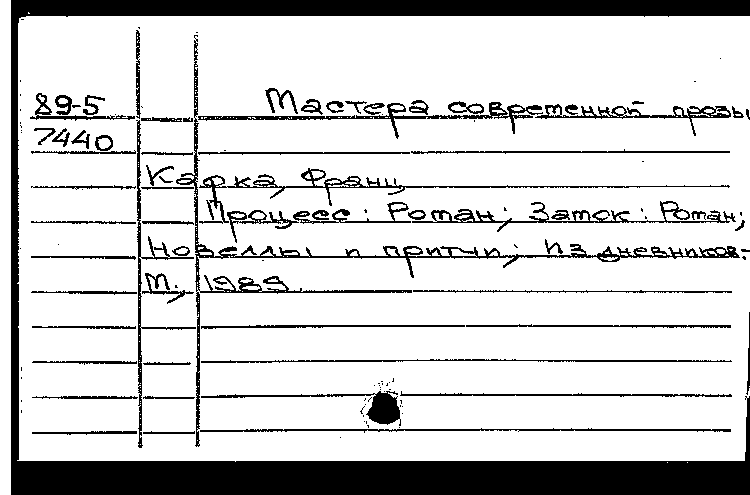 89-5 Мастера современной прозы
7440
Кафка, Франц
Процесс: Роман; Замок: Роман;
Новеллы и притчи; Из дневников.-
М., 1989.